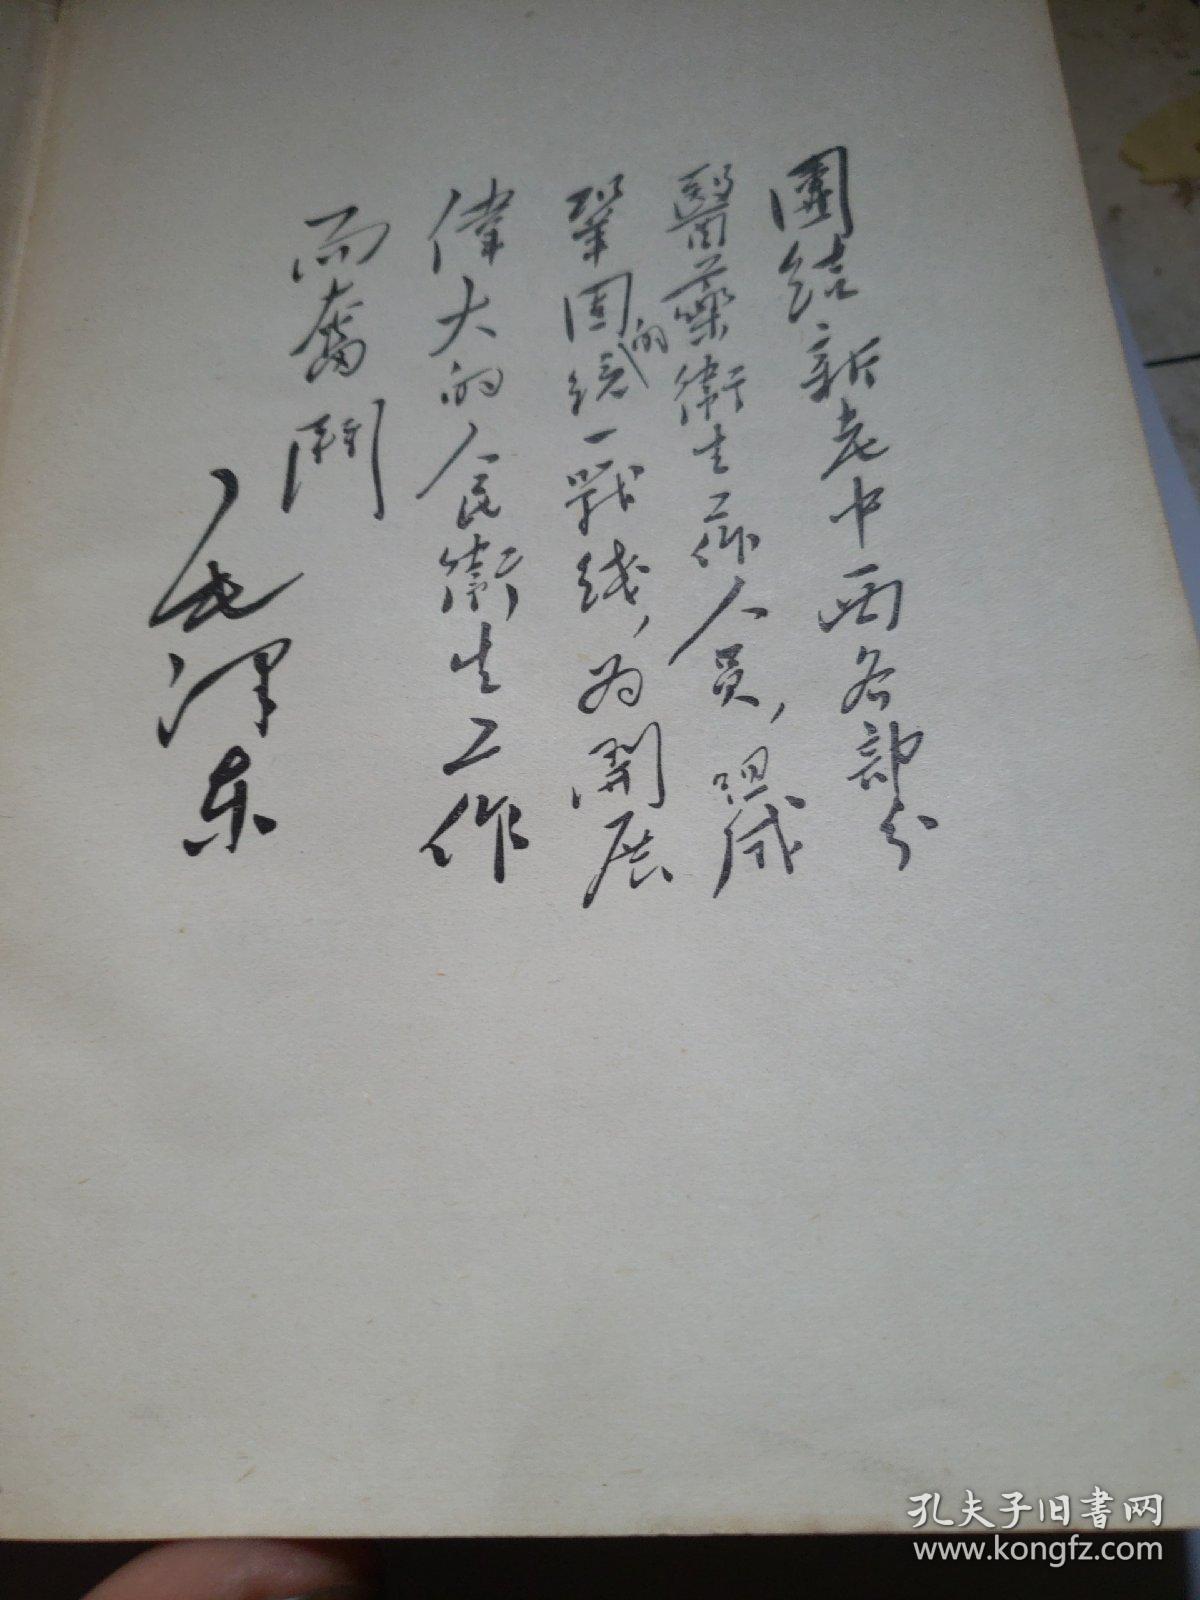 團結新老中西各部分
醫藥衛生工作人員，組成
鞏固的統一戰綫，為開展
偉大的人民衛生工作
而奮鬥
毛澤东
孔夫子旧書网
www.kongfz.com